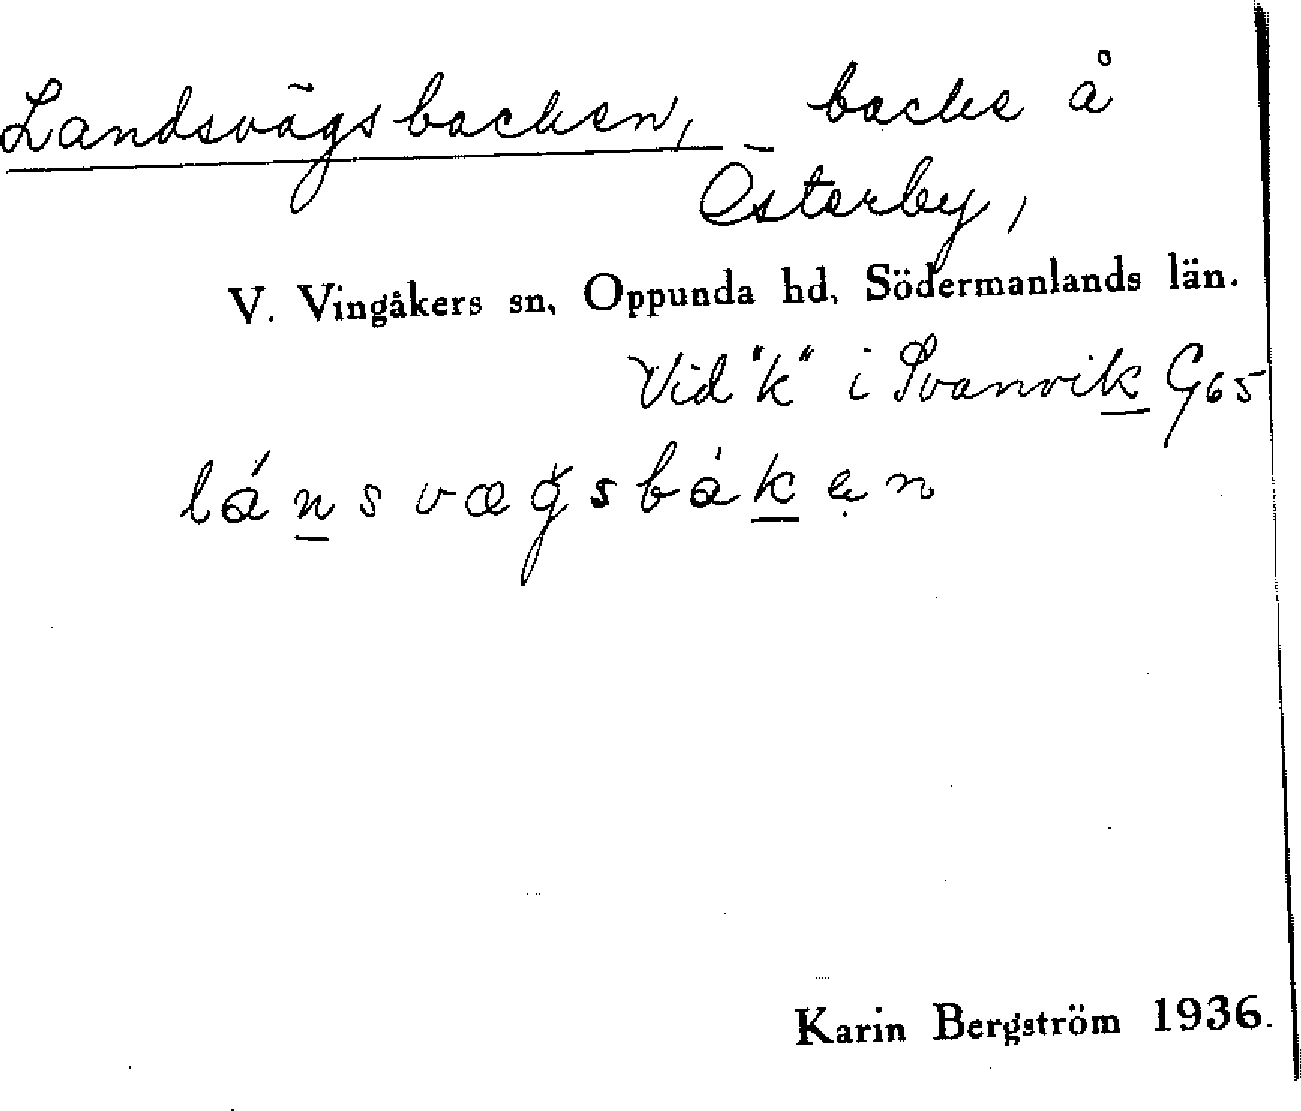 Landsvägsbacken, backe å
Österby,
V. Vingåkers sn, Oppunda hd, Södermanlands län.
Vid "k" i Svanvik G65
lánsvægsbàkẹn
Karin Bergström 1936.